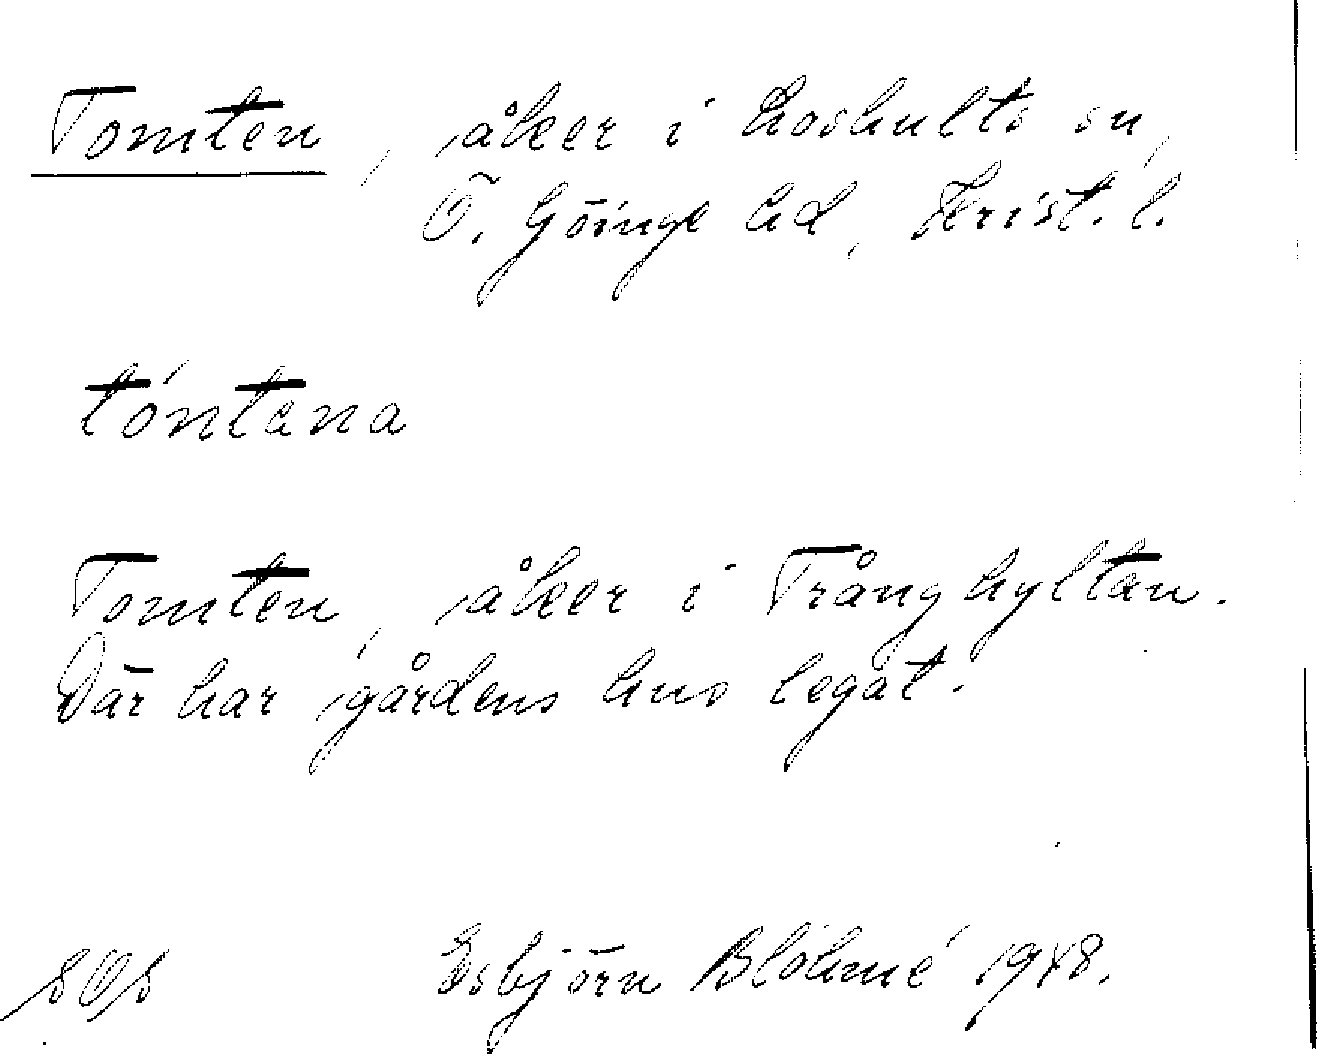 Tomten, åker i Loshults sn,
Ö. Göinge hd, Krist. l.
tóntena
Tomten, åker i Trånghyltan.
Där har gårdens hus legat.
SOS Esbjörn Blöhmé 1948.